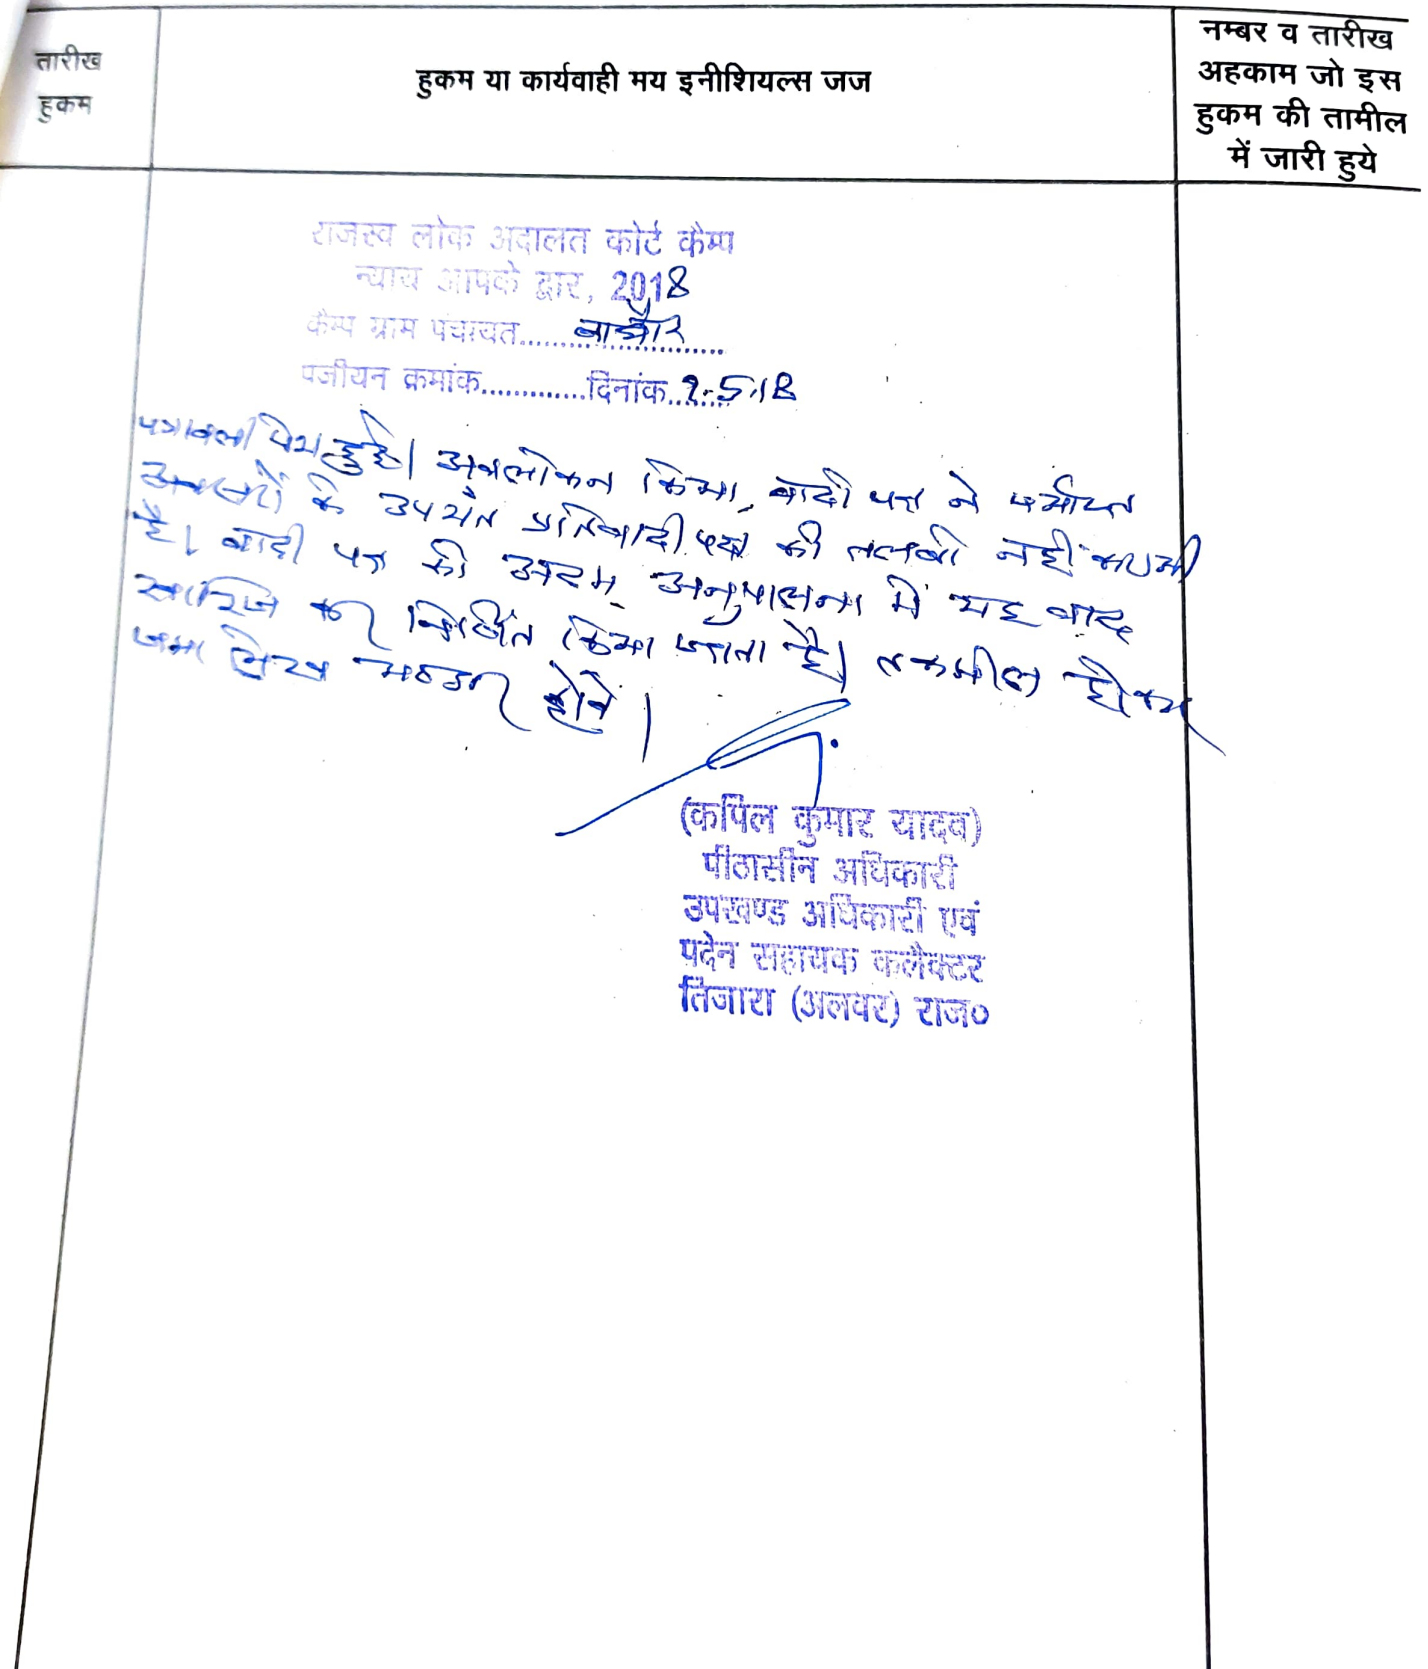 तारीख
हुकम
हुकम या कार्यवाही मय इनीशियल्स जज
नम्बर व तारीख
अहकाम जो इस
हुकम की तामील
में जारी हुये
राजस्व लोक अदालत कोर्ट कैम्प
न्याय आपके द्वार, 2018
कैम्प ग्राम पंचायत..........................
पंजीयन क्रमांक.............दिनांक........5.18
पत्रावली पेश हुई। अवलोकन किया, वादी पक्ष ने पर्याप्त
अवसरों के उपरांत प्रतिवादी पक्ष की तलबी नहीं करायी
है। वादी पक्ष की अदम अनुपालना में यह वाद
खारिज कर निर्णित किया जाता है। तकमील होकर
जमा लेख भण्डार होवे।
(कपिल कुमार यादव)
पीठासीन अधिकारी
उपखण्ड अधिकारी एवं
पदेन सहायक कलैक्टर
तिजारा (अलवर) राज०